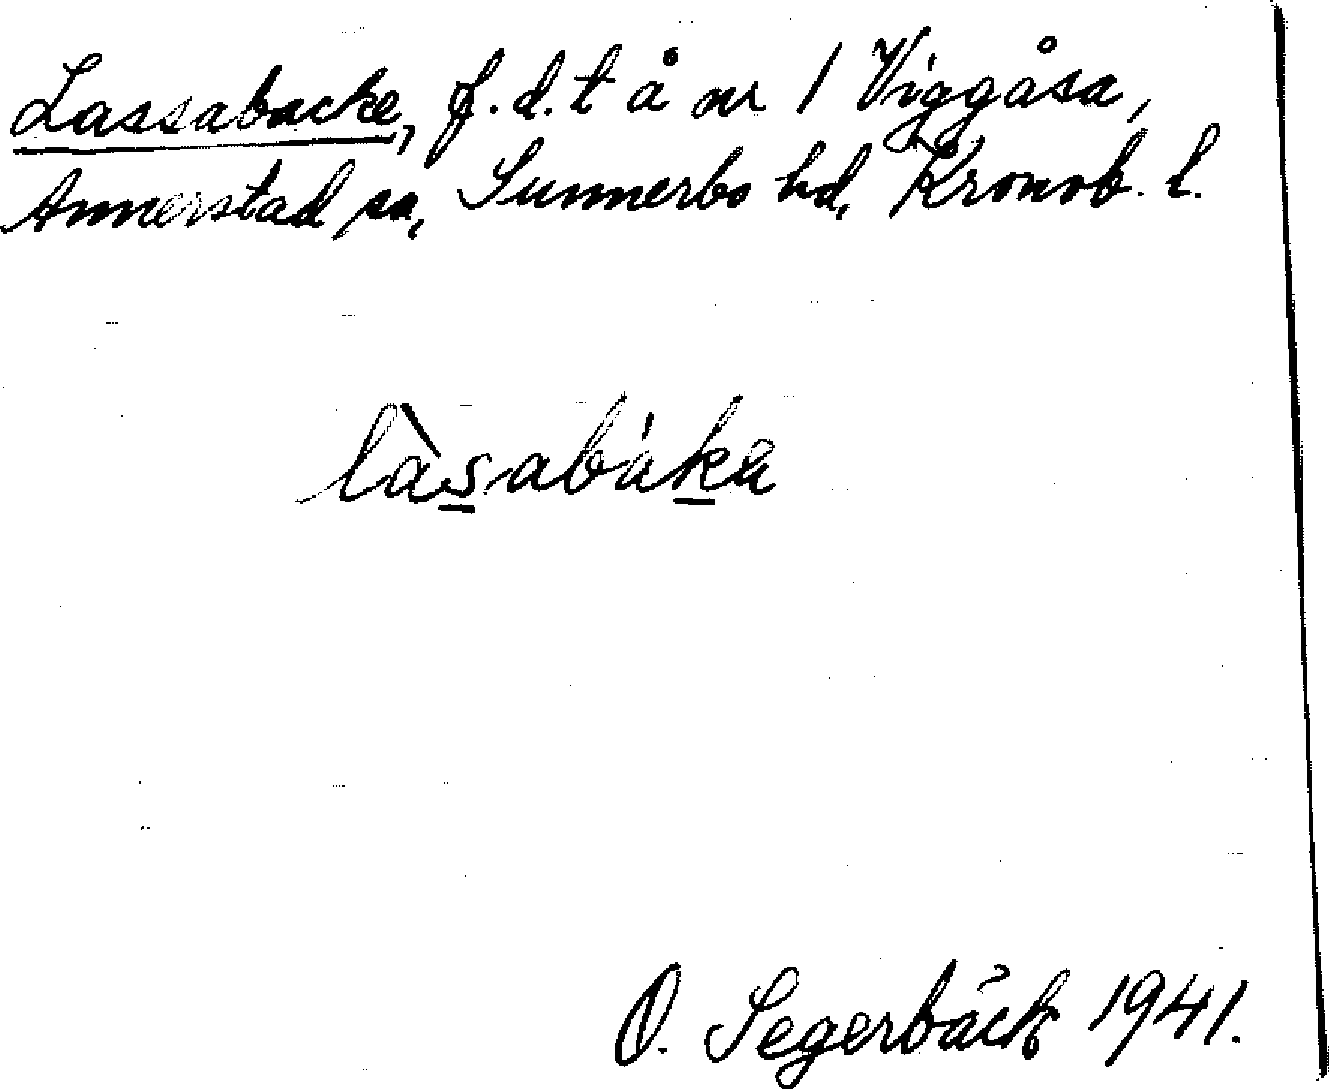 Lassabacke, f.d.t å nr 1 Viggåsa,
Annerstad sn, Sunnerbo hd, Kronob. l.
làsabáka
O. Segerbäck 1941.